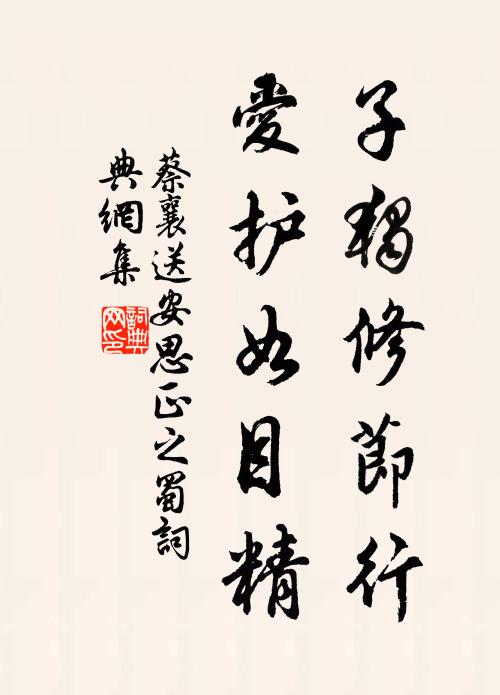 子獨修節行
愛护如目精
蔡襄送安思正之蜀詞
典網集
詞典
网印